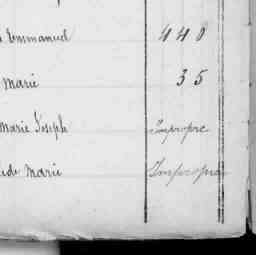 Emmanuel 440
Marie 35
Marie Joseph Impropre
Marie Impropre